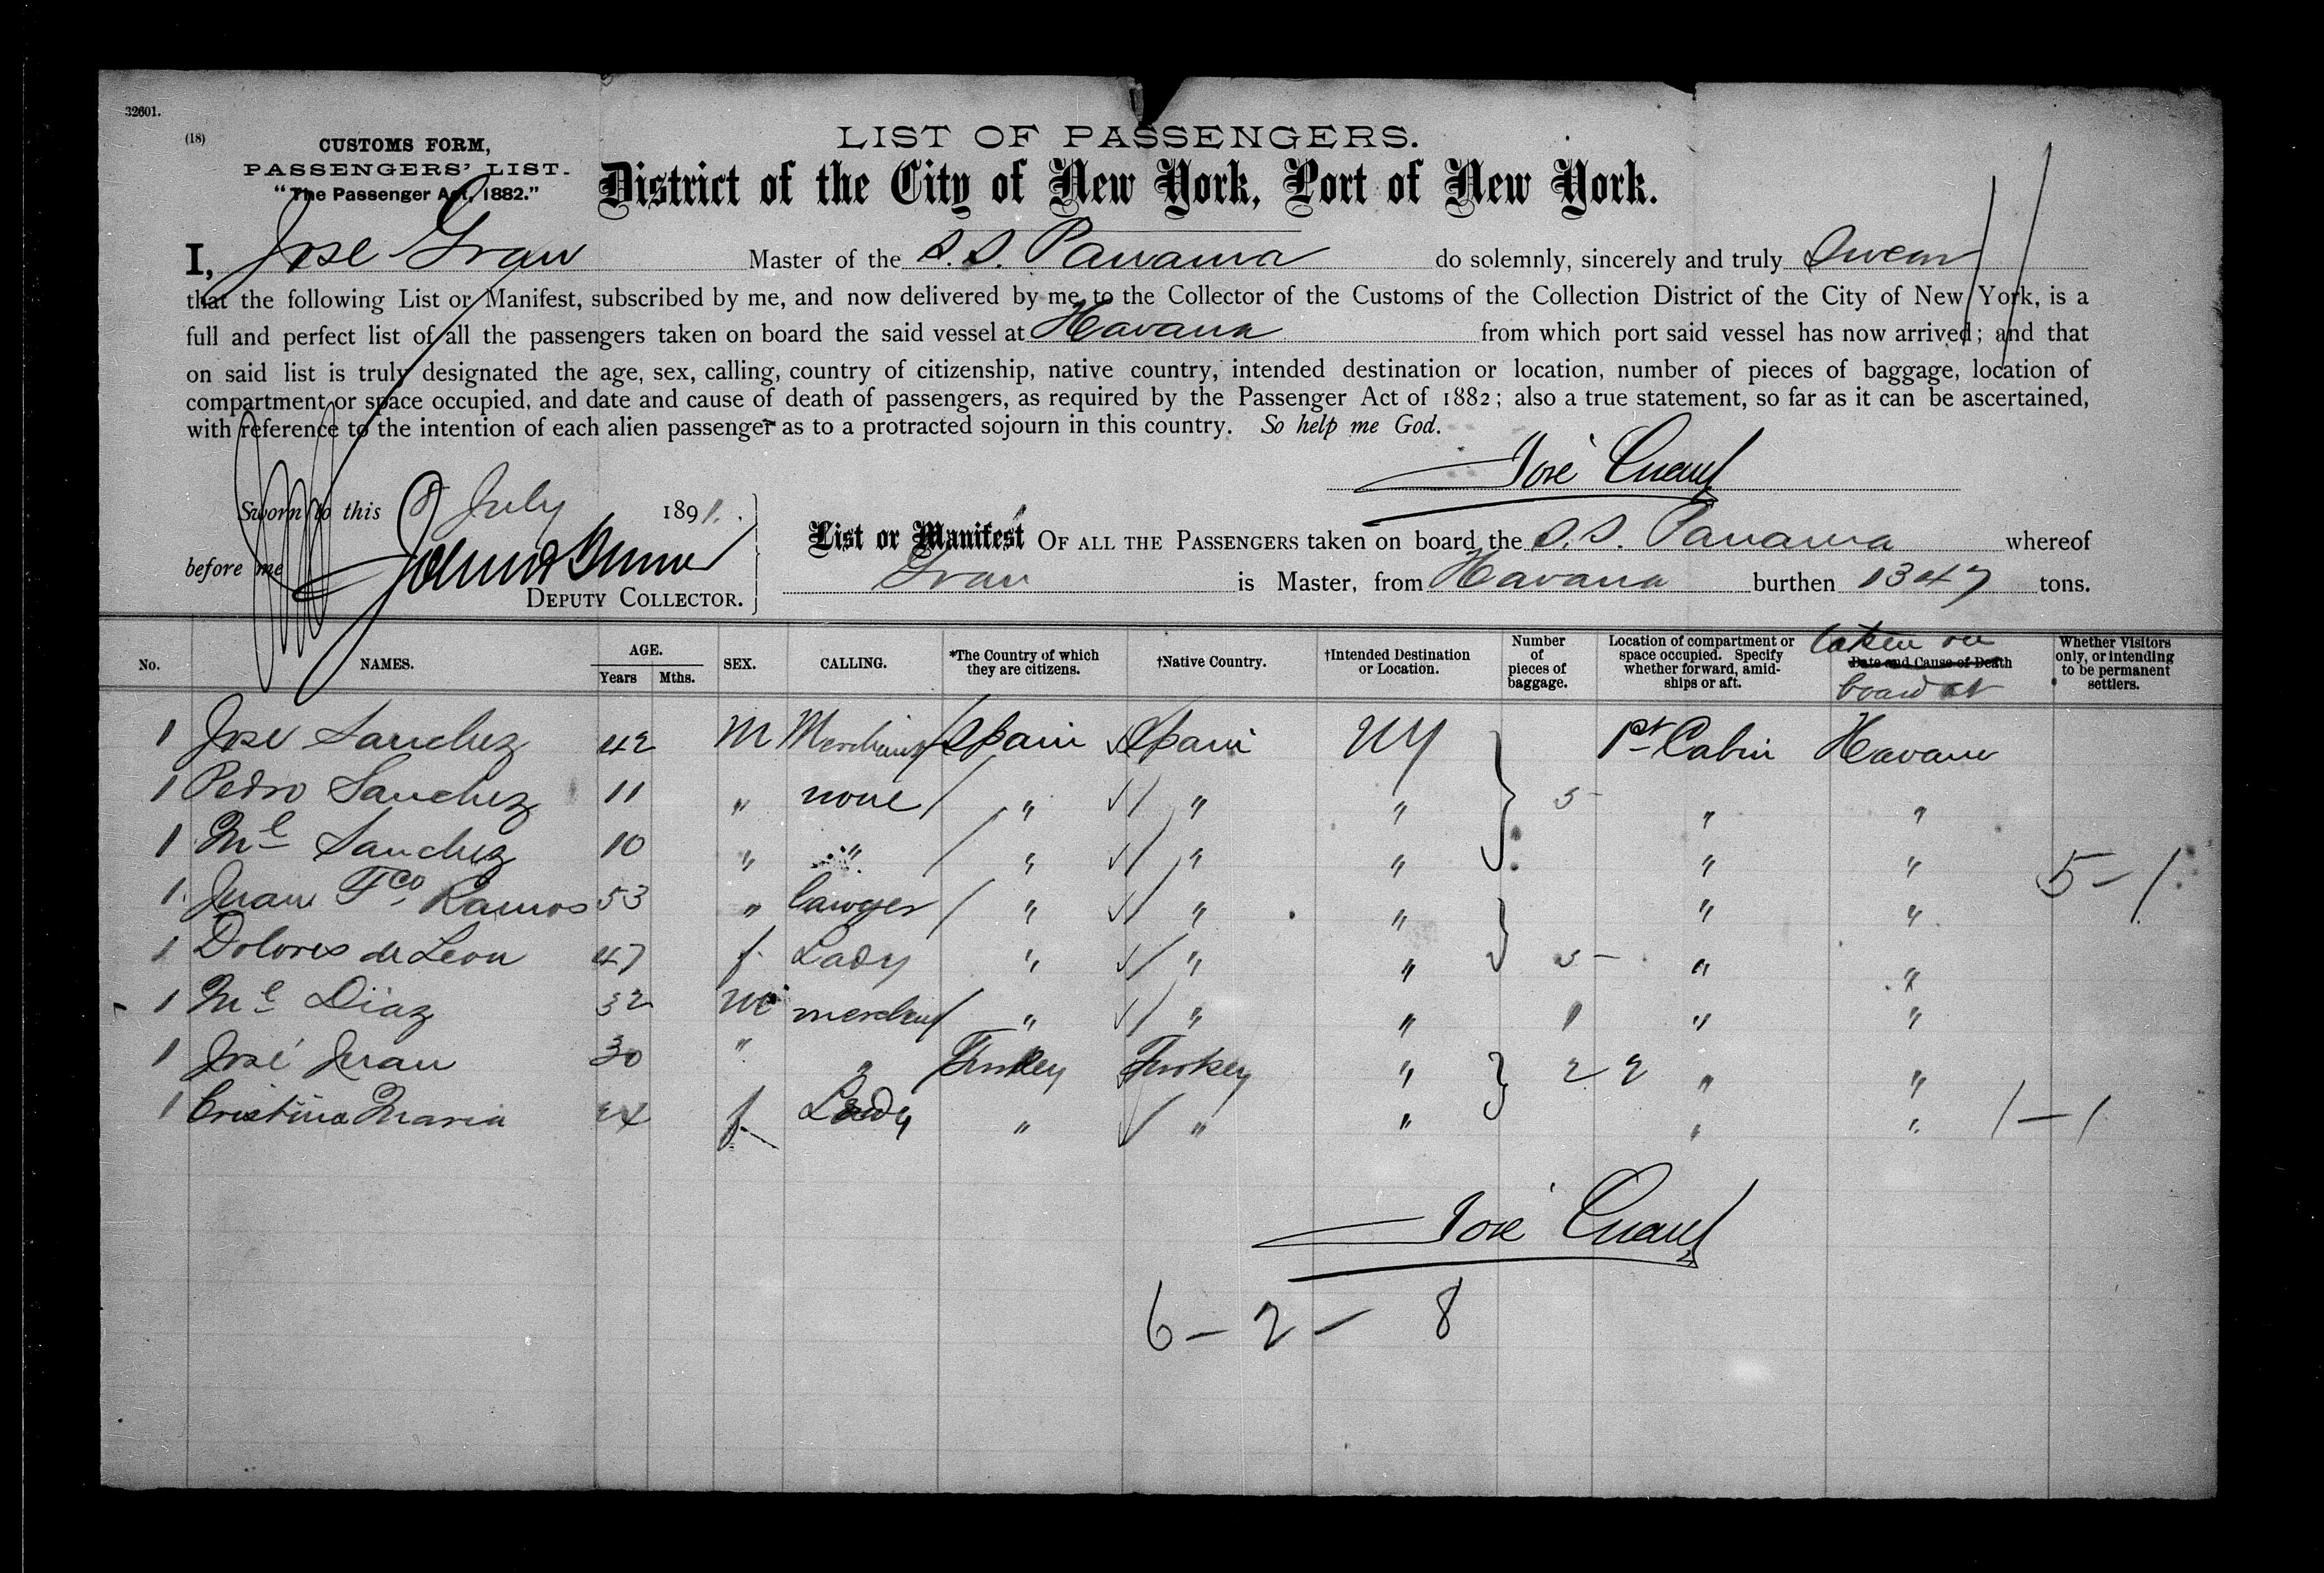 32601.
(18)
CUSTOMS FORM,
PASSENGERS' LIST.
"The Passenger Act, 1882."
LIST OF PASSENGERS.
District of the City of New York, Port of New York.
I, Jose Grau Master of the S.S. Panama do solemnly, sincerely and truly Swear
that the following List or Manifest, subscribed by me, and now delivered by me to the Collector of the Customs of the Collection District of the City of New York, is a
full and perfect list of all the passengers taken on board the said vessel at Havana from which port said vessel has now arrived; and that
on said list is truly designated the age, sex, calling, country of citizenship, native country, intended destination or location, number of pieces of baggage, location of
compartment or space occupied, and date and cause of death of passengers, as required by the Passenger Act of 1882; also a true statement, so far as it can be ascertained,
with reference to the intention of each alien passenger as to a protracted sojourn in this country. So help me God.
José Grau
Sworn to this 8 July 1891.
before me
DEPUTY COLLECTOR.
List or Manifest OF ALL THE PASSENGERS taken on board the S.S. Panama whereof
Grau is Master, from Havana burthen 1347 tons.
No. NAMES. AGE. Years Mths. SEX. CALLING. *The Country of which they are citizens. †Native Country. †Intended Destination or Location. Number of pieces of baggage. Location of compartment or space occupied. Specify whether forward, amidships or aft. Date and Cause of Death taken on board at Whether Visitors only, or intending to be permanent settlers.
1 Jose Sanchez 42 M Merchant Spain Spain NY 1st Cabin Havana
1 Pedro Sanchez 11 " none " " " 5 " "
1 Ml Sanchez 10 " " " " " " "
1 Juan Fco Ramos 53 " Lawyer " " " " " 5 - 1
1 Dolores de Leon 47 f Lady " " " 5 " "
1 Ml Diaz 32 M merchant " " " 1 " "
1 José Juan 30 " " Turkey Turkey " 2 2 " "
1 Cristina Maria 24 f Lady " " " " " 1 - 1
José Grau
6 - 2 - 8